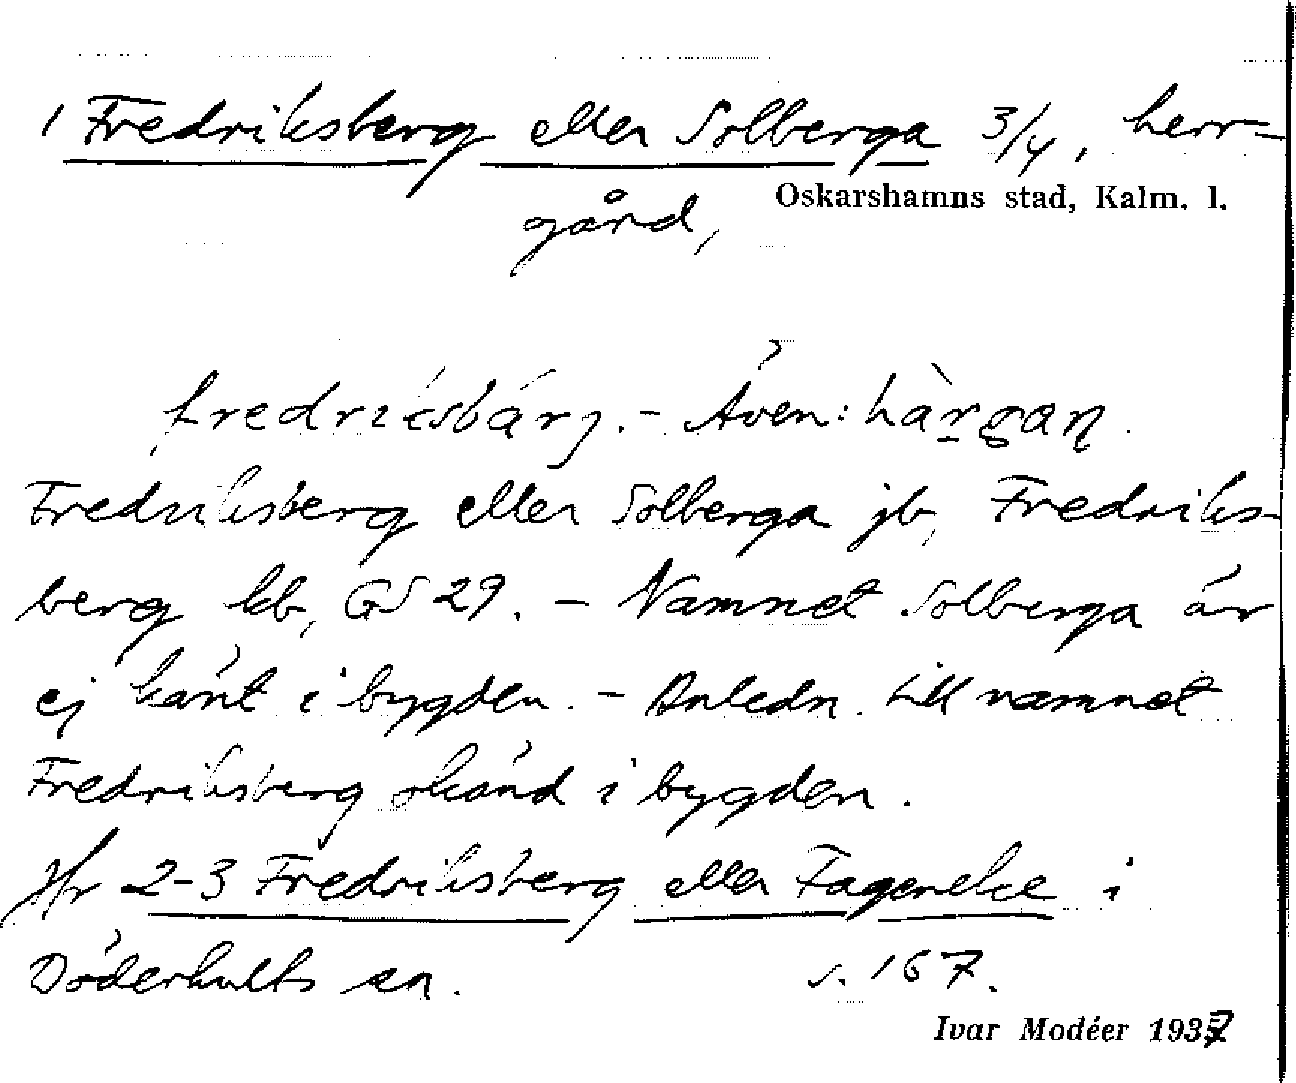 1 Fredriksberg eller Solberga 3/4, herr-
Oskarshamns stad, Kalm. l.
gård,
fredriksbárj. - Även: hàrgan.
Fredriksberg eller Solberga jb, Fredriks-
berg kb, GS 29. - Namnet Solberga är
ej känt i bygden. - Anledn. till namnet
Fredriksberg okänd i bygden.
Jfr 2-3 Fredriksberg eller Fagereke i
Döderhults sn. s. 167.
Ivar Modéer 1937